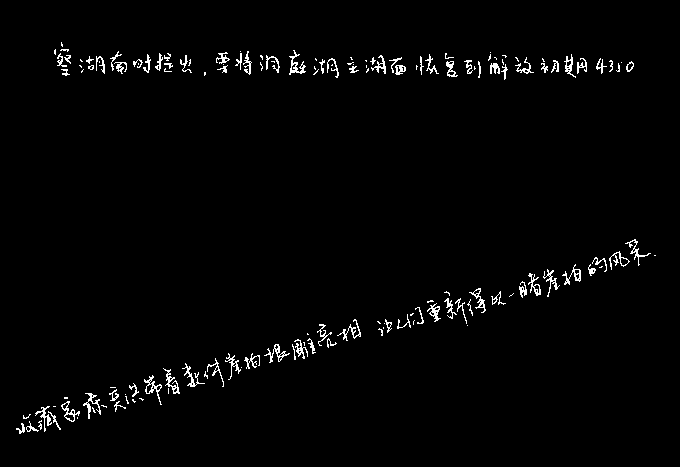 察湖南时提出，要将洞庭湖主湖面恢复到解放初期4350
收藏家陈奕洪带着数件崖柏根雕亮相 让人们重新得以一睹崖柏的风采.